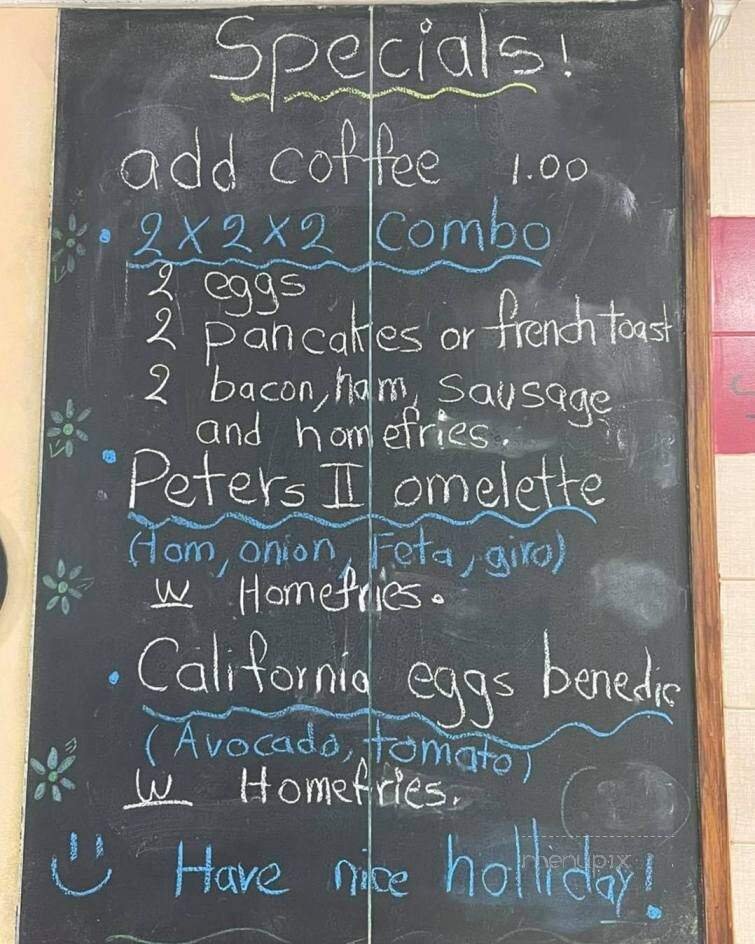 Specials!
add coffee 1.00
• 2x2x2 Combo
2 eggs
2 pancakes or french toast
2 bacon, ham, sausage
and homefries.
• Peters II omelette
(tom, onion, Feta, giro)
W Homefries.
• California eggs benedic
(Avocado, tomato)
W Homefries.
Have nice holliday!
menupix